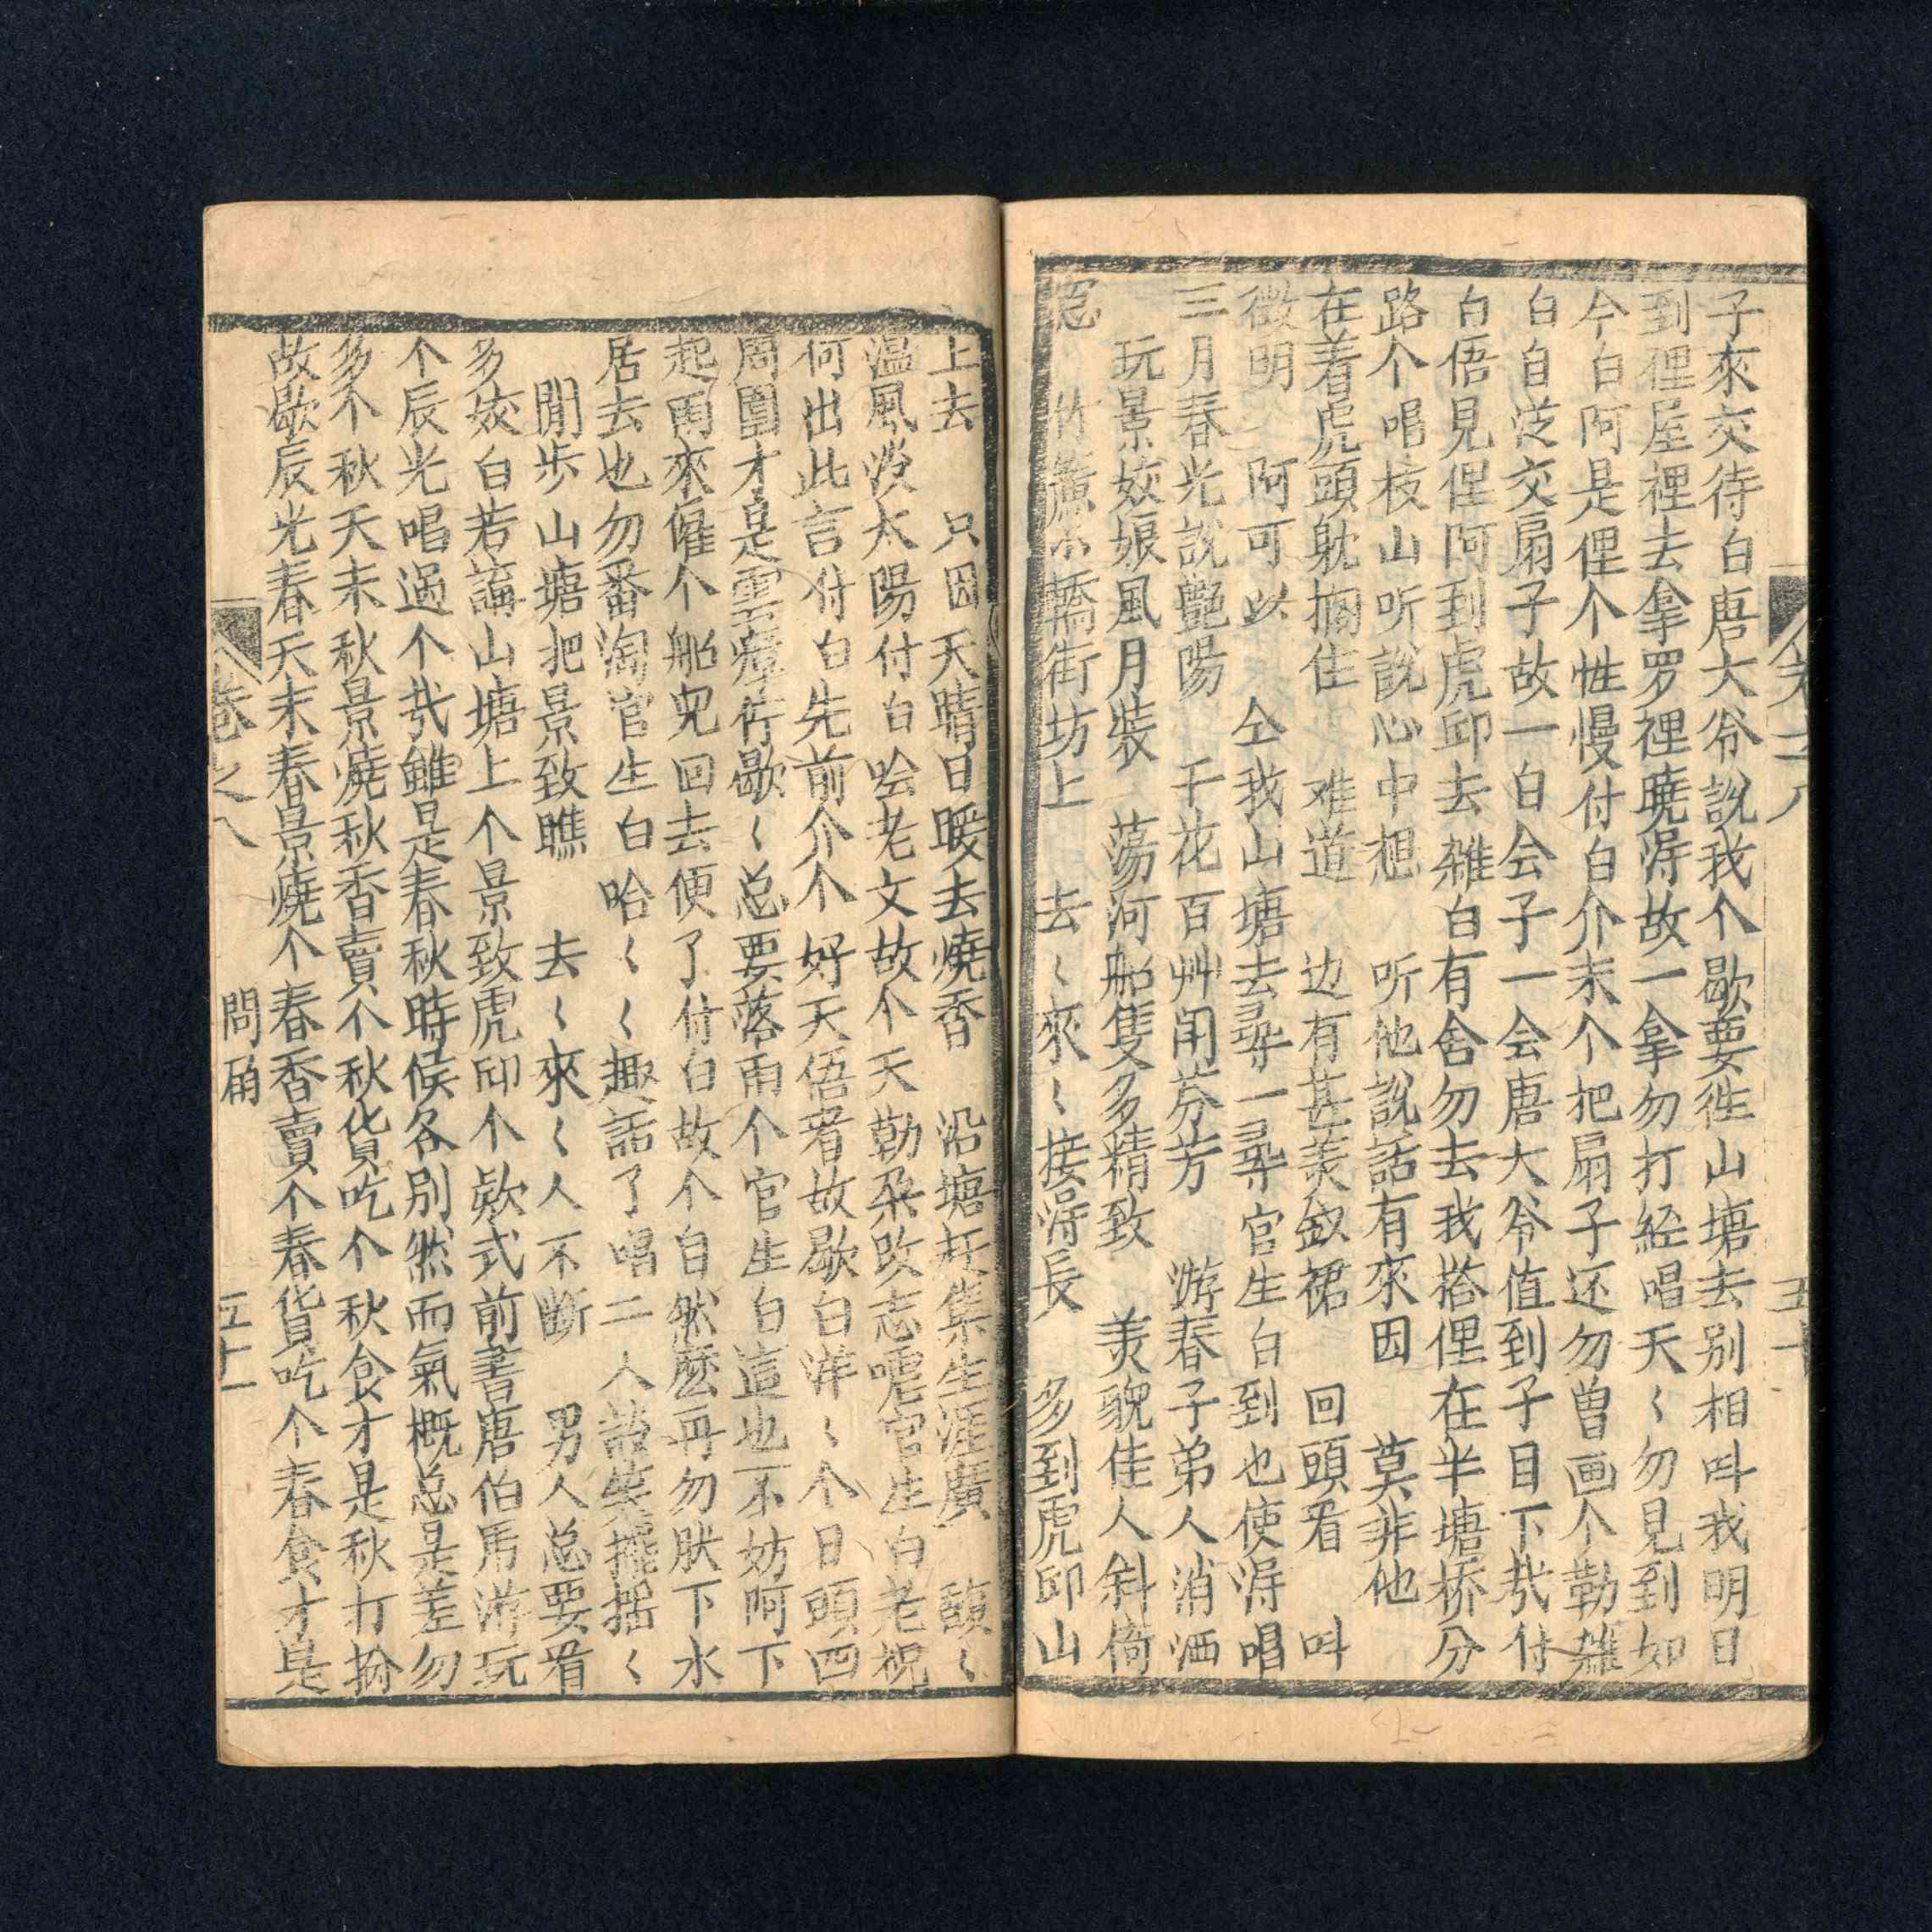 子來交待白唐大爷說我个歇要徃山塘去别相呌我明日
到俚屋裡去拿罗裡曉淂故一拿勿打経唱天〻勿見到如
今白阿是俚个性慢付白介末个把扇子还勿曾画个勒雜
白自従交扇子故一白会子一会唐大爷值到子目下㦲付
白俉見俚阿到虎邱去雜白有舍勿去我搭俚在半塘桥分
路个唱枝山听說心中想 听他說話有來因 莫非他
在着虎頭躭擱住 难道 边有甚羙釵裙 回頭看 呌
徴明 阿可以 仝我山塘去尋一尋官生白到也使淂唱
三月春光說艷陽 千花百艸闬芬芳 游春子弟人消洒
玩景姣娘風月裝 蕩河船隻多精致 羙貌佳人斜倚
窓 竹簾小轎街坊上 去〻來〻接淂長 多到虎邱山
上去 只因天晴日暖去燒香 沿塘圩集生涯廣 馥〻
温風淡太陽付白哙老文故个天勒朶改志嚡官生白老祝
何出此言付白先前介个好天俉看故歇白洋〻个日頭四
周圍才是雲瘪竹歇〻总要落雨个官生白這也不妨呵下
起雨來僱个船兜回去便了付白故个自然麽再勿肰下水
居去也勿番淘官生白哈〻〻趣話了唱二人談笑擺揺〻
閒步山塘把景致瞧 去〻來〻人不断 男人总要看
多姣白若論山塘上个景致虎邱个欵式前書唐伯乕游玩
个辰光唱過个㦲雖是春秋時候各别然而氣概总是差勿
多个秋天末秋景燒秋香賣个秋貨吃个秋食才是秋打扮
故歇辰光春天末春景燒个春香賣个春貨吃个春食才是
卷之八 問痏 五十一